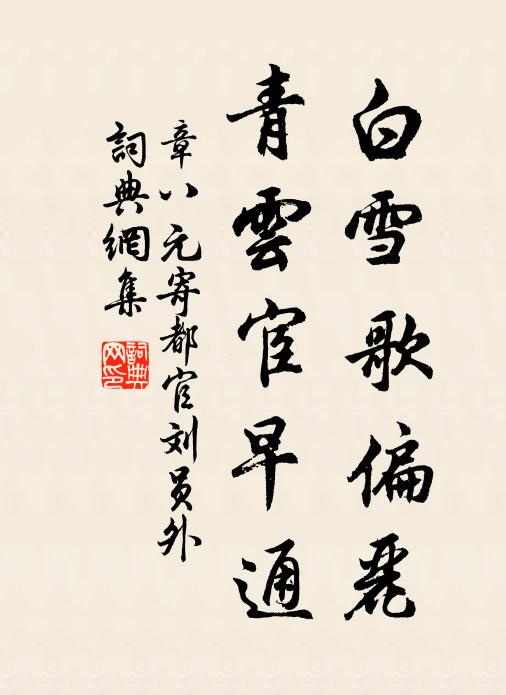 白雪歌偏麗
青雲宦早通
章八元寄都官刘员外
詞典網集
詞典網印